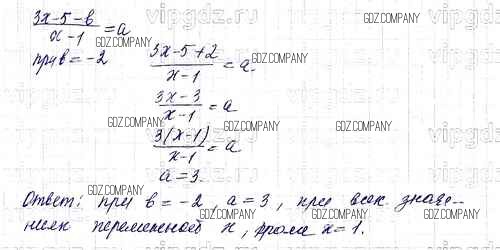 (3x-5-b)/(x-1) = a
при b = -2
(3x-5+2)/(x-1) = a.
(3x-3)/(x-1) = a
(3(x-1))/(x-1) = a
a = 3.
Ответ: при b = -2, a = 3, при всех значе-
ниях переменной x, кроме x = 1.
GDZ.COMPANY
GDZ.COMPANY
GDZ.COMPANY
GDZ.COMPANY
GDZ.COMPANY
GDZ.COMPANY
GDZ.COMPANY
GDZ.COMPANY
GDZ.COMPANY
GDZ.COMPANY
GDZ.COMPANY
vipgdz.ru
vipgdz.ru